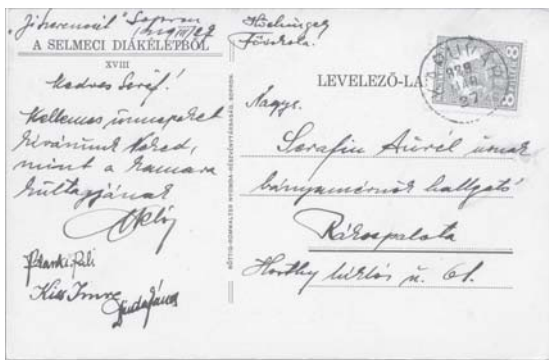 "Jószerencsét" Sopron
A SELMECI DIÁKÉLETBŐL
XVIII
Kedves Seraf!
Kellemes ünnepeket
kívánunk Néked,
mint a kamara
kültagjának
Kiss Imre
RÖTTIG-ROMWALTER NYOMDA-RÉSZVÉNYTÁRSASÁG, SOPRON.
Főiskola.
LEVELEZŐ-LA
928
MÁR
27
8
8
Nagys.
Serafin Aurél úrnak
bányamérnök hallgató
Rákospalota
Horthy Miklós u. 61.